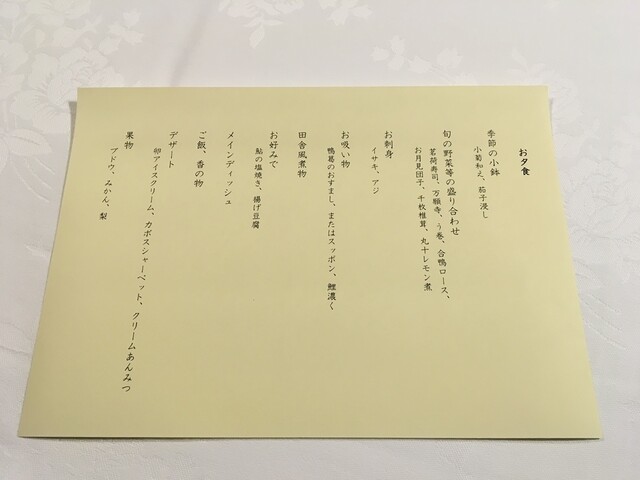 お夕食
季節の小鉢
小菊和え、茄子浸し
旬の野菜等の盛り合わせ
茗荷寿司、万願寺、う巻、合鴨ロース、
お月見団子、千枚椎茸、丸十レモン煮
お刺身
イサキ、アジ
お吸い物
鴨葛のおすまし、またはスッポン、鯉濃く
田舎風煮物
お好みで
鮎の塩焼き、揚げ豆腐
メインディッシュ
ご飯、香の物
デザート
卵アイスクリーム、カボスシャーベット、クリームあんみつ
果物
ブドウ、みかん、梨